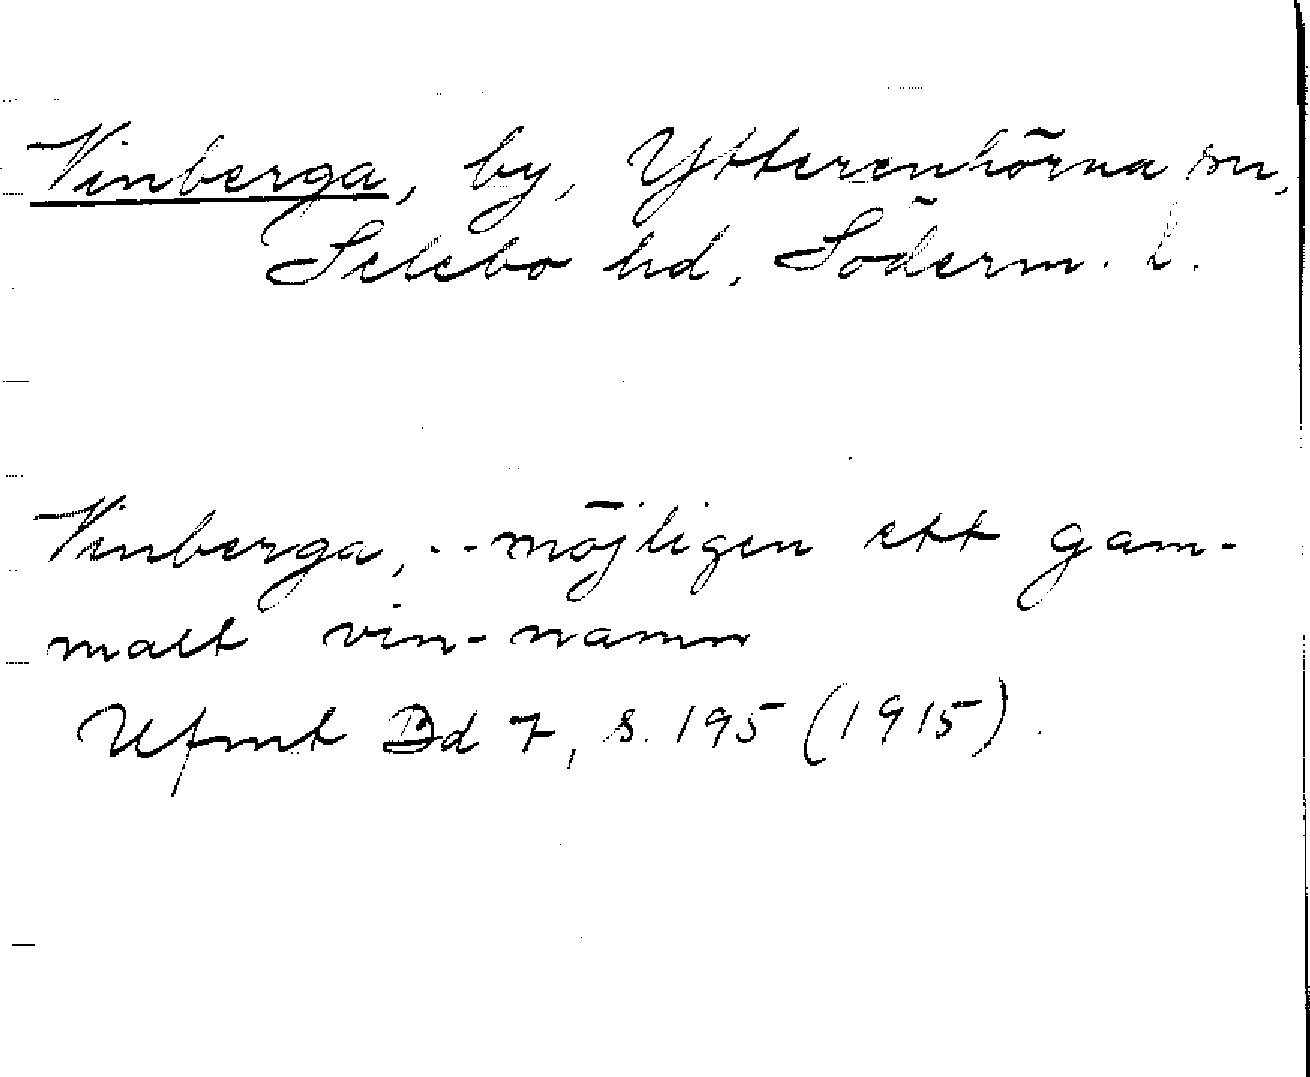 Vinberga, by, Ytterenhörna sn,
Selebo hd, Söderm. l.
Vinberga, .. möjligen ett gam-
malt vin-namn
Ufmt Bd 7, s. 195 (1915).